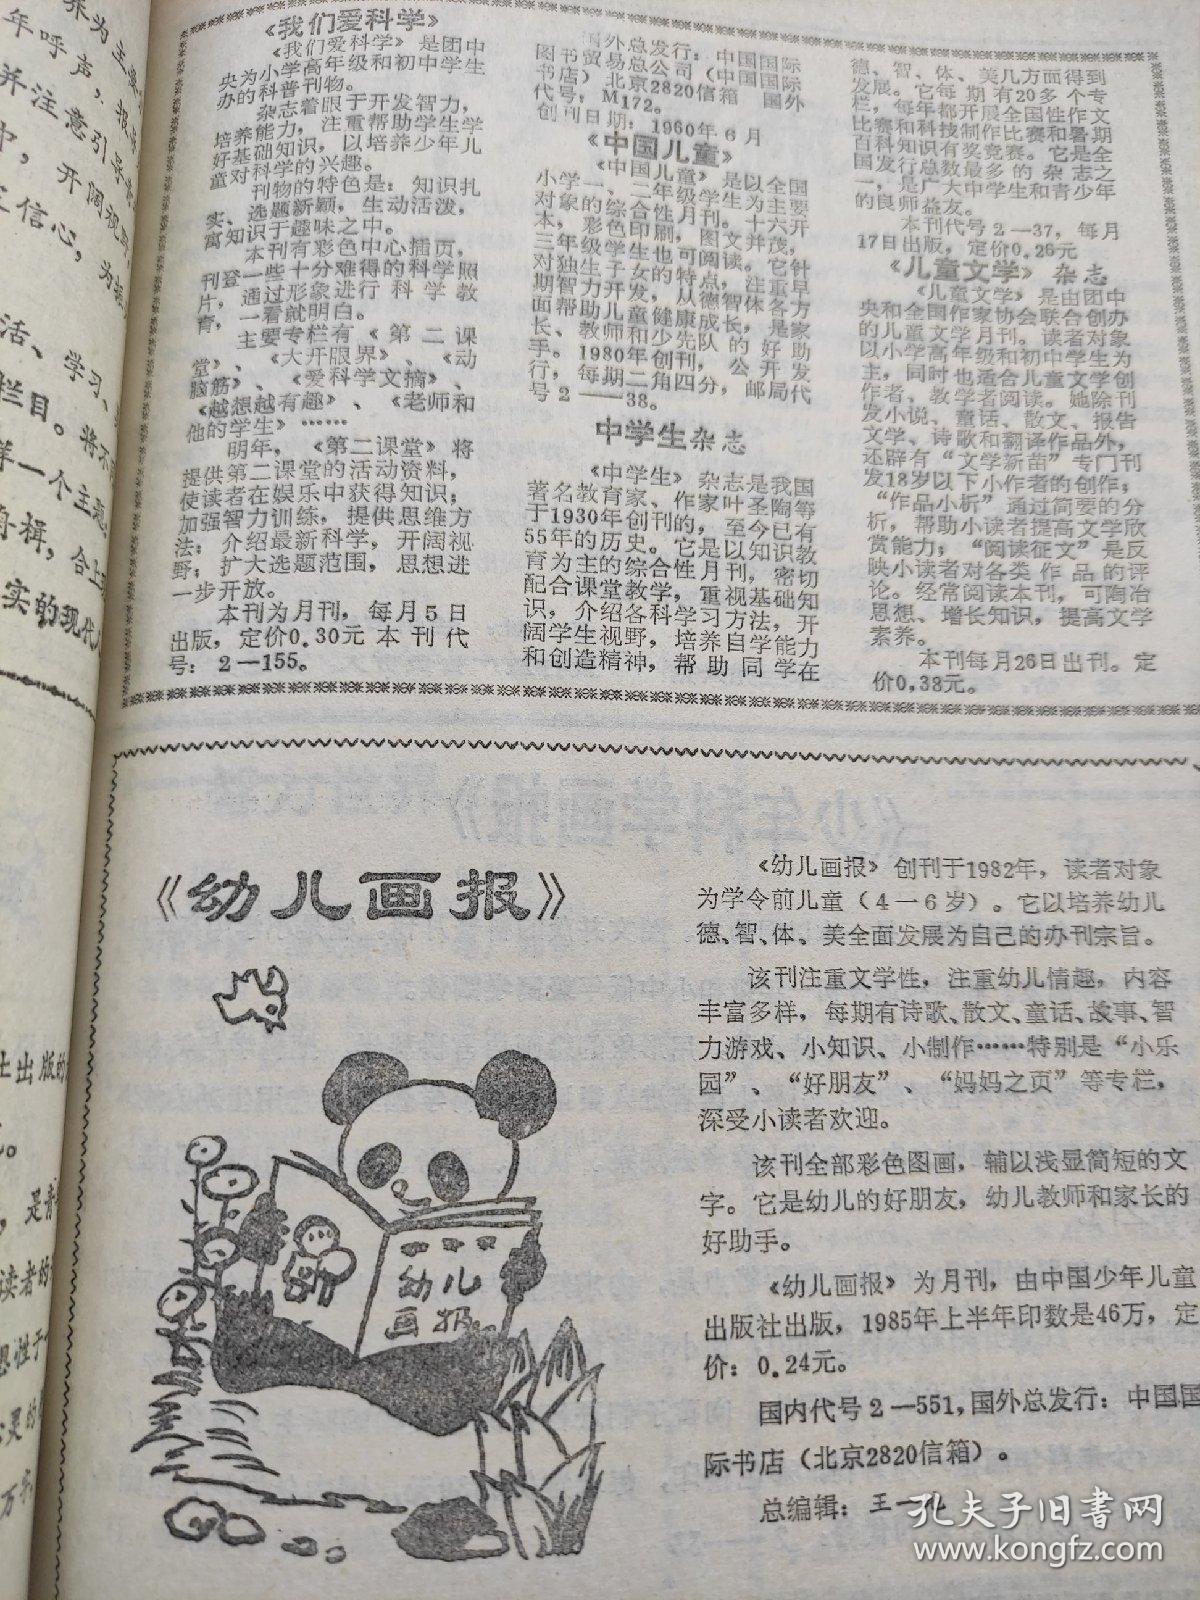 《我们爱科学》
《我们爱科学》是团中
央为小学高年级和初中学生
办的科普刊物。
杂志着眼于开发智力，
培养能力，注重帮助学生学
好基础知识，以培养少年儿
童对科学的兴趣。
刊物的特色是：知识扎
实、选题新颖，生动活泼，
寓知识于趣味之中。
本刊有彩色中心插页，
刊登一些十分难得的科学照
片，通过形象进行科学教
育，一看就明白。
主要专栏有《第二课
堂》、《大开眼界》、《动
脑筋》、《爱科学文摘》、
《越想越有趣》、《老师和
他的学生》……
明年，《第二课堂》将
提供第二课堂的活动资料，
使读者在娱乐中获得知识；
加强智力训练，提供思维方
法；介绍最新科学，开阔视
野；扩大选题范围，思想进
一步开放。
本刊为月刊，每月5日
出版，定价0.30元本刊代
号：2—155。
国外总发行：中国国际
图书贸易总公司（中国国际
书店）北京2820信箱 国外
代号：M172。
创刊日期：1960年6月
《中国儿童》
《中国儿童》是以全国
小学一、二年级学生为主要
对象的综合性月刊。十六开
本，彩色印刷，图文并茂，
三年级学生也可阅读。它针
对独生子女的特点，注重早
期智力开发，从德智体各方
面帮助儿童健康成长，是家
长、教师和少先队的好助
手。1980年创刊，公开发
行，每期二角四分，邮局代
号2——38。
中学生杂志
《中学生》杂志是我国
著名教育家、作家叶圣陶等
于1930年创刊的，至今已有
55年的历史。它是以知识教
育为主的综合性月刊，密切
配合课堂教学，重视基础知
识，介绍各科学习方法，开
阔学生视野，培养自学能力
和创造精神，帮助同学在
德、智、体、美几方面得到
发展。它每期有20多个专
栏，每年都开展全国性作文
比赛和科技制作比赛和暑期
百科知识有奖竞赛。它是全
国发行总数最多的杂志之
一，是广大中学生和青少年
的良师益友。
本刊代号2—37，每月
17日出版，定价0.26元
《儿童文学》杂志
《儿童文学》是由团中
央和全国作家协会联合创办
的儿童文学月刊。读者对象
以小学高年级和初中学生为
主，同时也适合儿童文学创
作者、教学者阅读。她除刊
发小说、童话、散文、报告
文学、诗歌和翻译作品外，
还辟有“文学新苗”专门刊
发18岁以下小作者的创作；
“作品小析”通过简要的分
析，帮助小读者提高文学欣
赏能力；“阅读征文”是反
映小读者对各类作品的评
论。经常阅读本刊，可陶冶
思想、增长知识，提高文学
素养。
本刊每月26日出刊。定
价0.38元。
《幼儿画报》
幼儿
画报
《幼儿画报》创刊于1982年，读者对象
为学令前儿童（4—6岁）。它以培养幼儿
德、智、体、美全面发展为自己的办刊宗旨。
该刊注重文学性，注重幼儿情趣，内容
丰富多样，每期有诗歌、散文、童话、故事、智
力游戏、小知识、小制作……特别是“小乐
园”、“好朋友”、“妈妈之页”等专栏，
深受小读者欢迎。
该刊全部彩色图画，辅以浅显简短的文
字。它是幼儿的好朋友，幼儿教师和家长的
好助手。
《幼儿画报》为月刊，由中国少年儿童
出版社出版，1985年上半年印数是46万，定
价：0.24元。
国内代号2—551，国外总发行：中国国
际书店（北京2820信箱）。
总编辑：王一
孔夫子旧书网
www.kongfz.com